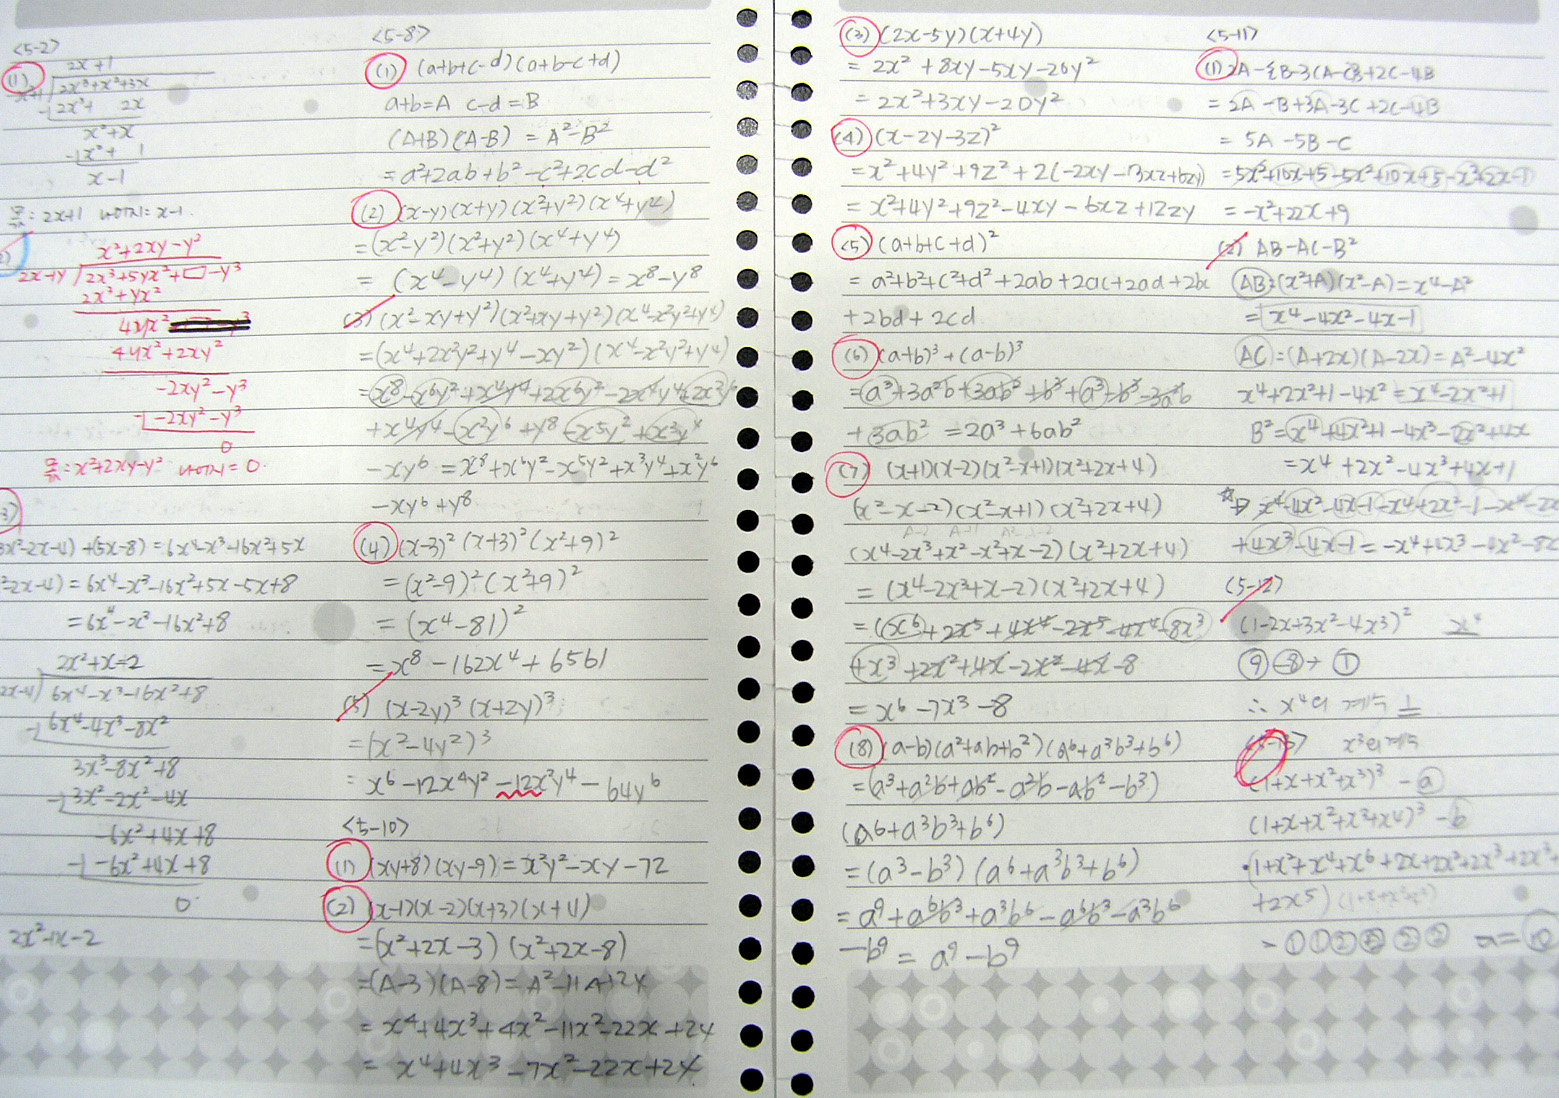 <5-2>
(1)
2x+1
x+1 2x³+x²+3x
2x³+ 2x
x²+x
x²+ 1
x-1
몫: 2x+1 나머지=x-1
x²+2xy-y²
2x+y 2x³+5yx²+□-y³
2x³+yx²
4yx²
4yx²+2xy²
-2xy²-y³
-2xy²-y³
0
몫:x²+2xy-y² 나머지=0.
3x²-2x-4)+(5x-8)=6x⁴-x³-16x²+5x
²-2x-4)=6x⁴-x³-16x²+5x-5x+8
=6x⁴-x³-16x²+8
2x²+x-2
2x-4) 6x⁴-x³-16x²+8
6x⁴-4x³-8x²
3x³-8x²+8
3x³-2x²-4x
-6x²+4x+8
-6x²+4x+8
0
2x²+x-2
<5-8>
(1) (a+b+c-d)(a+b-c+d)
a+b=A c-d=B
(A+B)(A-B)=A²-B²
=a²+2ab+b²-c²+2cd-d²
(2) (x-y)(x+y)(x²+y²)(x⁴+y⁴)
=(x²-y²)(x²+y²)(x⁴+y⁴)
=(x⁴-y⁴)(x⁴+y⁴)=x⁸-y⁸
(3) (x²-xy+y²)(x²+xy+y²)(x⁴-x²y²+y⁴)
=(x⁴+2x²y²+y⁴-xy²)(x⁴-x²y²+y⁴)
=x⁸-x⁶y²+x⁴y⁴+2x⁶y²-2x⁴y⁴+2x²y⁶
+x⁴y⁴-x²y⁶+y⁸-x⁵y²+x³y⁴
-xy⁶=x⁸+x⁶y²-x⁵y²+x³y⁴+x²y⁶
-xy⁶+y⁸
(4) (x-3)²(x+3)²(x²+9)²
=(x²-9)²(x²+9)²
=(x⁴-81)²
=x⁸-162x⁴+6561
(5) (x-2y)³(x+2y)³
=(x²-4y²)³
=x⁶-12x⁴y²-12x²y⁴-64y⁶
<5-10>
(1) (xy+8)(xy-9)=x²y²-xy-72
(2) (x-1)(x-2)(x+3)(x+4)
=(x²+2x-3)(x²+2x-8)
=(A-3)(A-8)=A²-11A+24
=x⁴+4x³+4x²-11x²-22x+24
=x⁴+4x³-7x²-22x+24
(3) (2x-5y)(x+4y)
=2x²+8xy-5xy-20y²
=2x²+3xy-20y²
(4) (x-2y-3z)²
=x²+4y²+9z²+2(-2xy-3xz+6zy)
=x²+4y²+9z²-4xy-6xz+12zy
(5) (a+b+c+d)²
=a²+b²+c²+d²+2ab+2ac+2ad+2bc
+2bd+2cd
(6) (a+b)³+(a-b)³
=a³+3a²b+3ab²+b³+a³-b³-3a²b
+3ab²=2a³+6ab²
(7) (x+1)(x-2)(x²-x+1)(x²+2x+4)
(x²-x-2)(x²-x+1)(x²+2x+4)
(x⁴-2x³+x²-x²+x-2)(x²+2x+4)
=(x⁴-2x³+x-2)(x²+2x+4)
=(x⁶+2x⁵+4x⁴-2x⁵-4x⁴-8x³
+x³+2x²+4x-2x²-4x-8
=x⁶-7x³-8
(8) (a-b)(a²+ab+b²)(a⁶+a³b³+b⁶)
=(a³+a²b+ab²-a²b-ab²-b³)
(a⁶+a³b³+b⁶)
=(a³-b³)(a⁶+a³b³+b⁶)
=a⁹+a⁶b³+a³b⁶-a⁶b³-a³b⁶
-b⁹=a⁹-b⁹
<5-11>
(1) 2A-{B-3(A-C)}+2C-4B
=2A-B+3A-3C+2C-4B
=5A-5B-C
=5x²+10x+5-5x²+10x+5-x²+2x-1
=-x²+22x+9
(2) AB-AC-B²
AB:(x²+A)(x²-A)=x⁴-A²
=x⁴-4x²-4x-1
AC:(A+2x)(A-2x)=A²-4x²
x⁴+2x²+1-4x²=x⁴-2x²+1
B²=x⁴+4x²+1-4x³-2x²+4x
=x⁴+2x²-4x³+4x+1
☆⇒x⁴-4x²-4x-1-x⁴+2x²-1-x⁴-2x
+4x³-4x-1=-x⁴+4x³-4x²-8x
<5-12>
(1-2x+3x²-4x³)² x⁴
⑨-8+①
∴x⁴의 계수 1
x³의 계수
(1+x+x²+x³)³-ⓐ
(1+x+x²+x³+x⁴)³-ⓑ
(1+x²+x⁴+x⁶+2x+2x²+2x³+2x³+
+2x⁵)
a=10